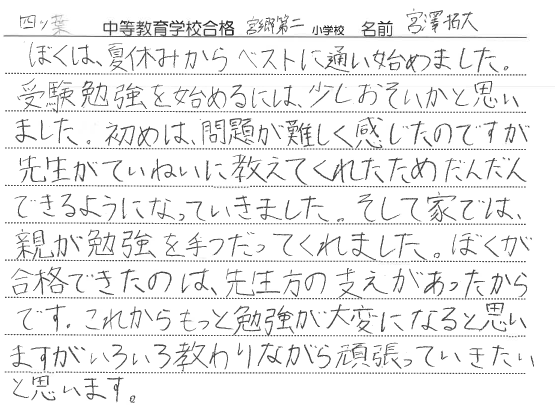 四ツ葉 中等教育学校合格 宮郷第二 小学校 名前 宮澤拓大
ぼくは、夏休みからベストに通い始めました。
受験勉強を始めるには、少しおそいかと思い
ました。初めは、問題が難しく感じたのですが
先生がていねいに教えてくれたためだんだん
できるようになっていきました。そして家では、
親が勉強を手つだってくれました。ぼくが
合格できたのは、先生方の支えがあったから
です。これからもっと勉強が大変になると思い
ますがいろいろ教わりながら頑張っていきたい
と思います。